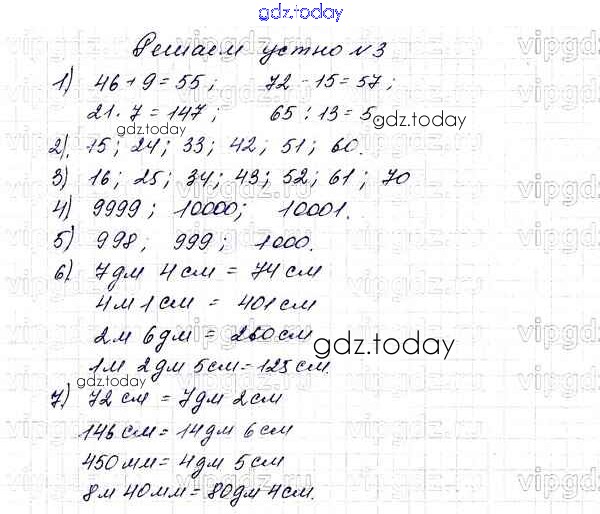 gdz.today
Решаем устно №3
1) 46+9=55; 72-15=57;
21·7=147; 65:13=5
gdz.today
gdz.today
2). 15; 24; 33; 42; 51; 60.
3) 16; 25; 34; 43; 52; 61; 70
4) 9999; 10000; 10001.
5) 998; 999; 1000.
6). 7дм 4см = 74см
4м 1см = 401см
2м 6дм = 260см
gdz.today
1м 2дм 5см=125см.
gdz.today
7) 72см = 7дм 2см
146см=14дм 6см
450мм=4дм 5см
8м 40мм=80дм 4см.